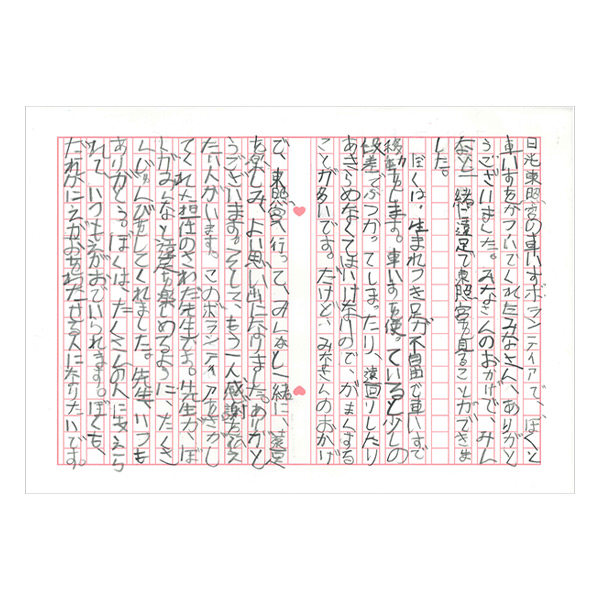 日光東照宮の車いすボランティアで、ぼくと
車いすをかついでくれたみなさん、ありがと
うございました。みなさんのおかげで、みん
なと一緒に遠足で東照宮を見ることができま
した。
ぼくは、生まれつき足が不自由で車いすで
移動をします。車いすを使っていると少しの
段差でぶつかってしまったり、遠回りしたり
あきらめなくてはいけないので、がまんする
ことが多いです。だけど、みなさんのおかげ
で、東照宮へ行って、みんなと一緒に、遠足
を楽しみ、よい思い出になりました。ありがと
うございます。そして、もう一人感謝を伝え
たい人がいます。このボランティアをさがし
てくれた担任のさわだ先生です。先生が、ぼ
くがみんなと遠足を楽しめるように、たくさ
んじゅんびをしてくれました。先生、いつも
ありがとう。ぼくは、たくさんの人に支えら
れて、いつもえがおでいられます。ぼくも、
だれかにえがおをわたせる人になりたいです。